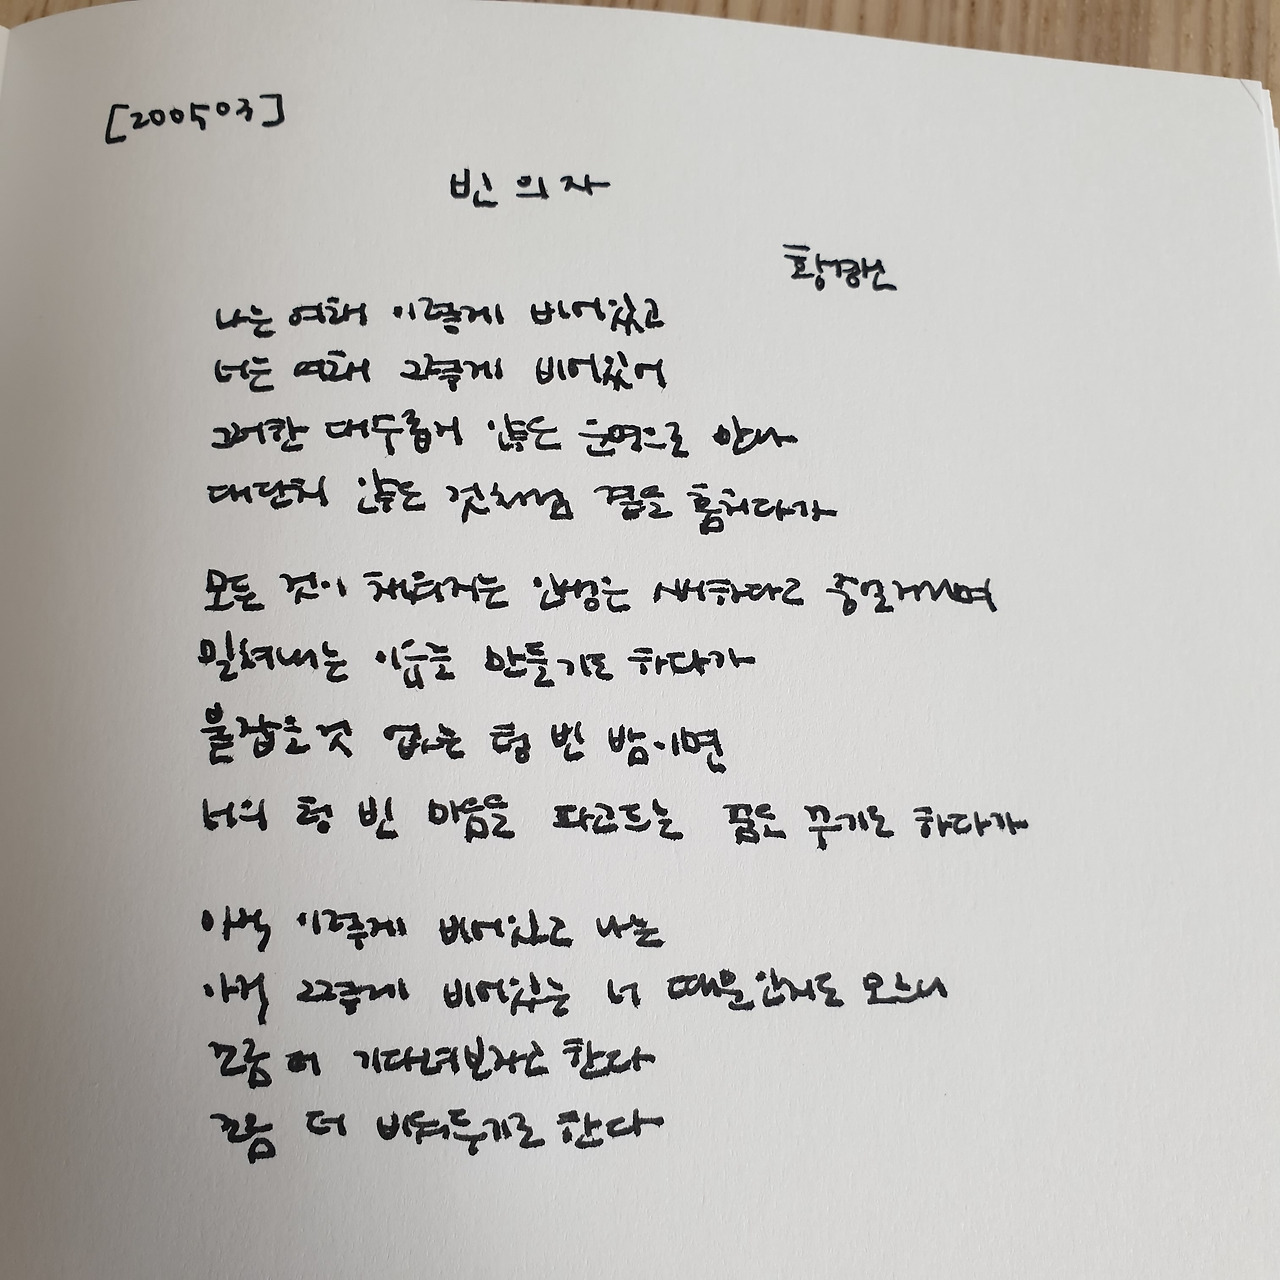 [200503]
빈 의자
황경신
나는 여태 이렇게 비어있고
너는 여태 그렇게 비어있어
그러한 대수롭지 않은 운명으로 만나
대단치 않은 것처럼 곁을 훔치다가
모든 것이 채워지는 인생은 시시하다고 중얼거리며
밀쳐내는 이유를 만들기도 하다가
붙잡을 것 없는 텅 빈 밤이면
너의 텅 빈 마음을 파고드는 꿈을 꾸기도 하다가
아직 이렇게 비어있고 나는
아직 그렇게 비어있는 너 때문인지도 모르니
조금 더 기다려보자고 한다
조금 더 비워두기로 한다